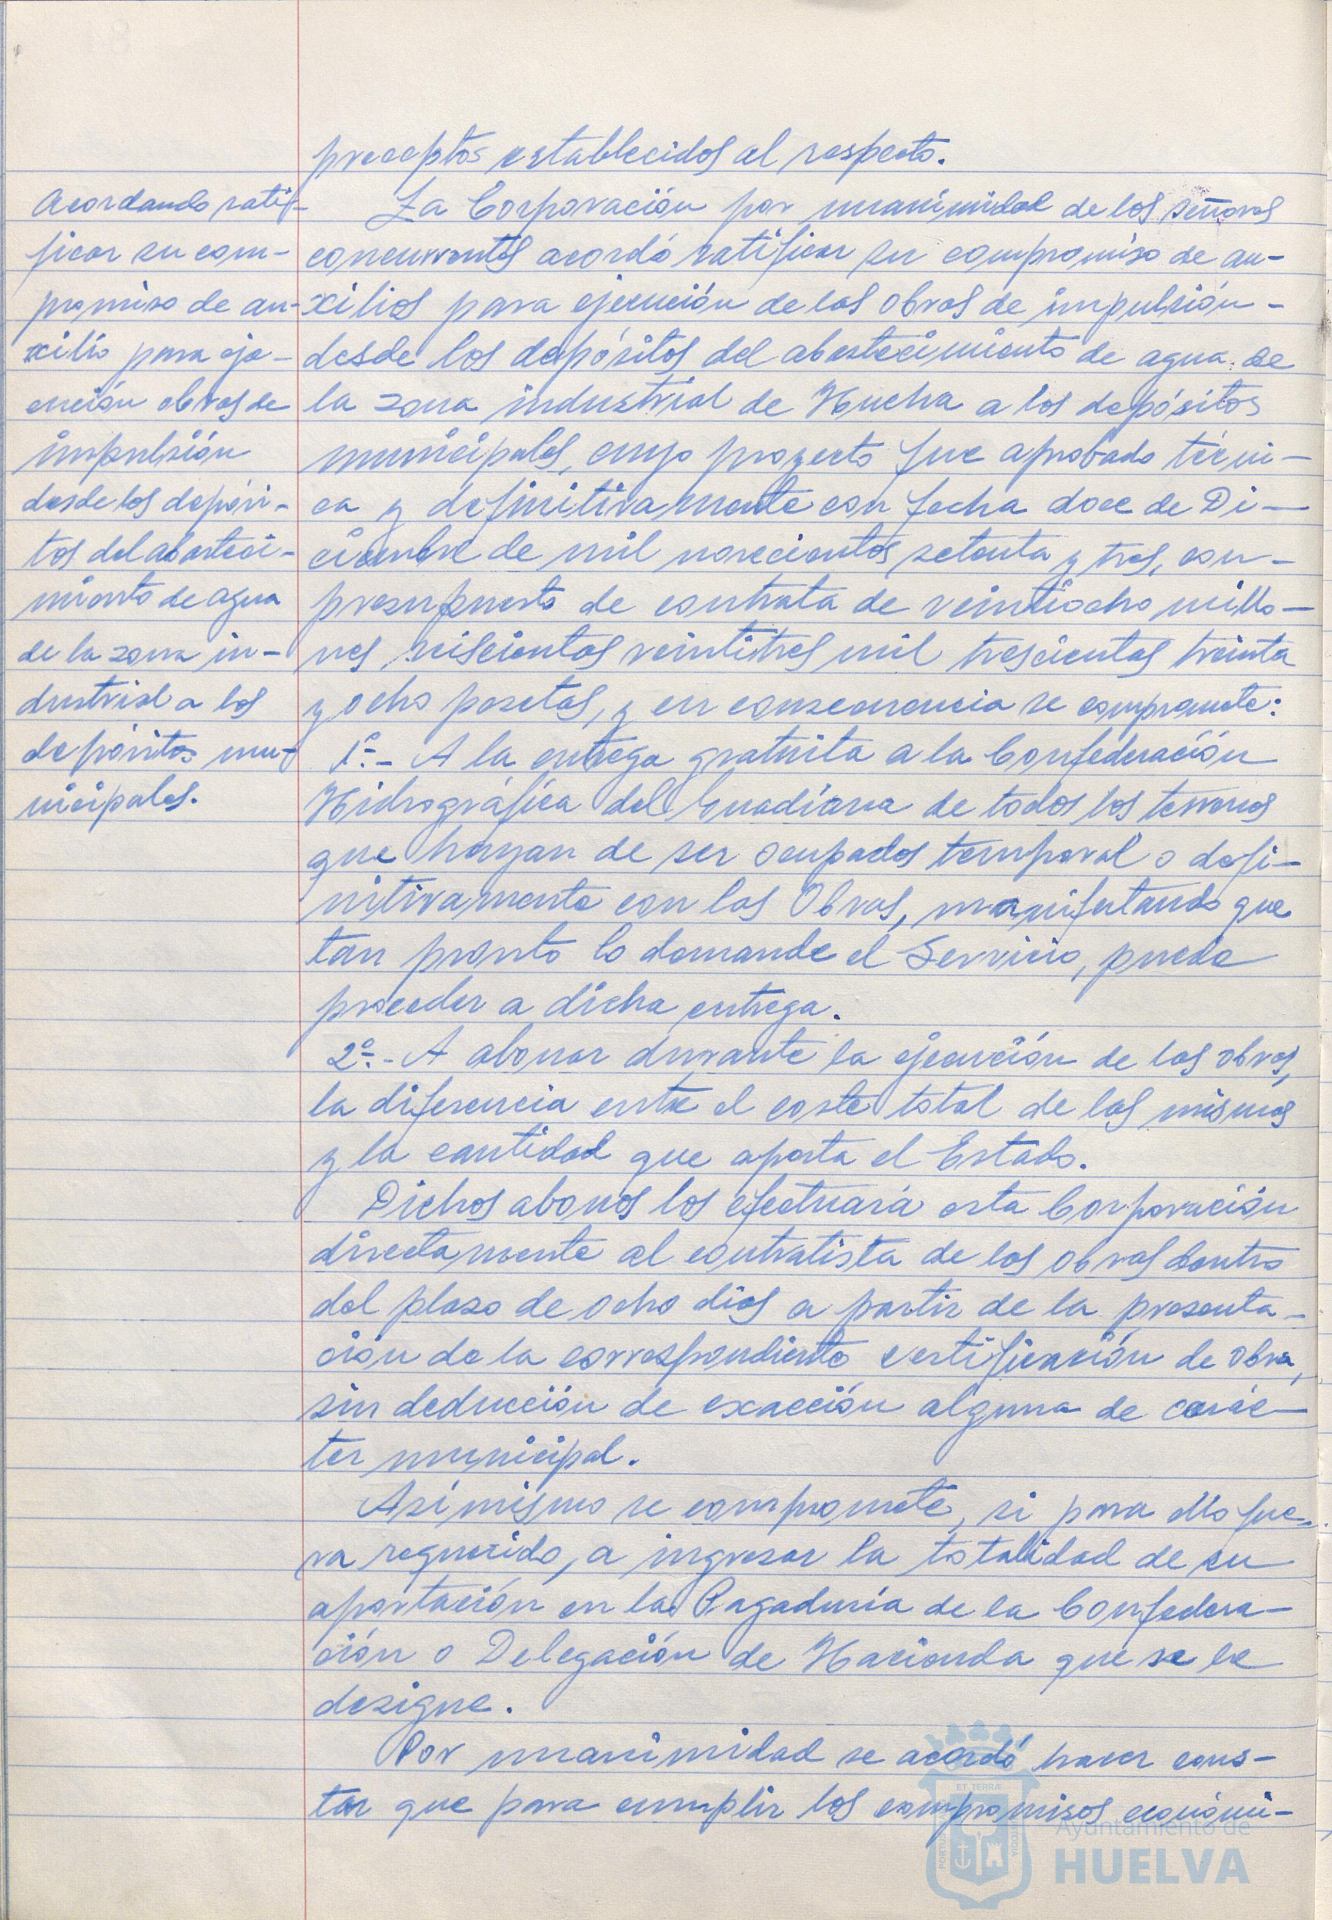 preceptos establecidos al respecto.
Acordando rati-
ficar su com-
promiso de au-
xilio para eje-
cución obras de
impulsión
desde los depósi-
tos del abasteci-
miento de agua
de la zona in-
dustrial a los
depósitos mu-
nicipales.
La Corporación por unanimidad de los señores
concurrentes acordó ratificar su compromiso de au-
xilios para ejecución de las obras de impulsión-
desde los depósitos del abastecimiento de agua de
la zona industrial de Huelva a los depósitos
municipales, cuyo proyecto fue aprobado técni-
ca y definitivamente con fecha doce de Di-
ciembre de mil novecientos setenta y tres, con-
presupuesto de contrata de veintiocho millo-
nes seiscientas veintitres mil trescientas treinta
y ocho pesetas, y en consecuencia se compromete:
1º.- A la entrega gratuita a la Confederación
Hidrográfica del Guadiana de todos los terrenos
que hayan de ser ocupados temporal o defi-
nitivamente con las Obras, manifestando que
tan pronto lo demande el Servicio, puede
proceder a dicha entrega.
2º.- A abonar durante la ejecución de las obras,
la diferencia entre el coste total de las mismas
y la cantidad que aporta el Estado.
Dichos abonos los efectuará esta Corporación
directamente al contratista de las obras dentro
del plazo de ocho días a partir de la presenta-
ción de la correspondiente certificación de obra,
sin deducción de exacción alguna de carác-
ter municipal.
Asimismo se compromete, si para ello fue-
ra requerido, a ingresar la totalidad de su
aportación en la Pagaduría de la Confedera-
ción o Delegación de Hacienda que se le
designe.
Por unanimidad se acordó hacer cons-
tar que para cumplir los compromisos económi-
Ayuntamiento de
HUELVA